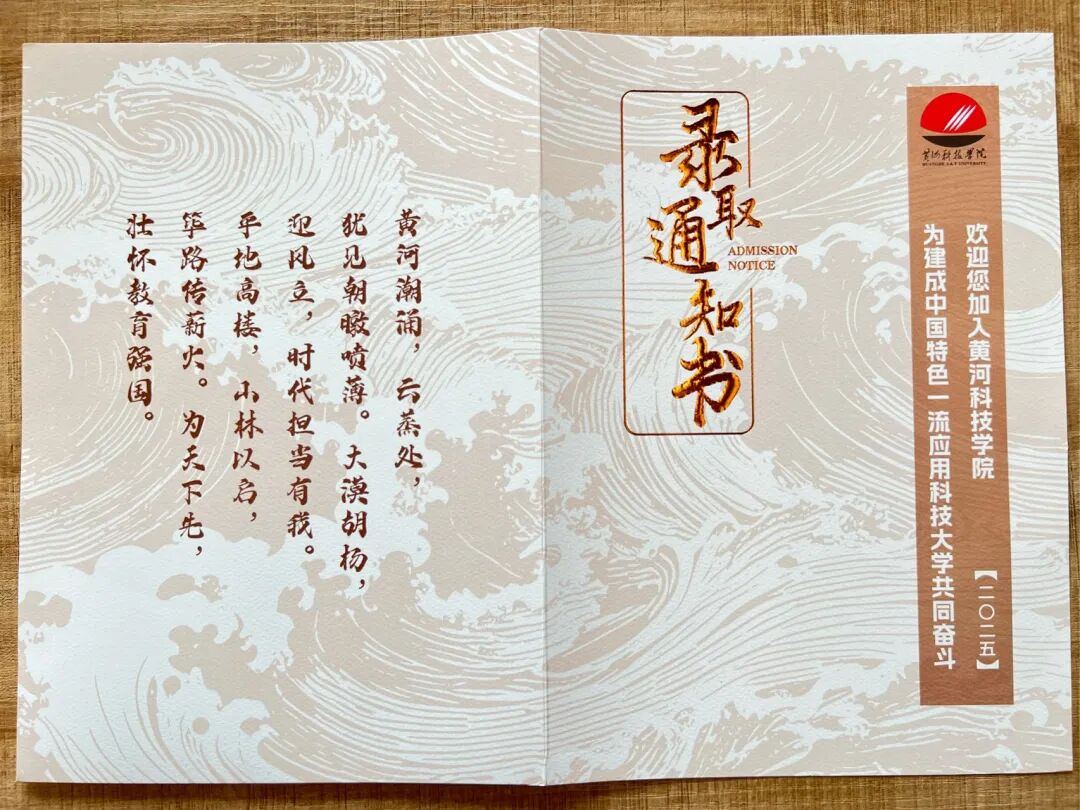 黄河科技学院
HUANGHE S & T UNIVERSITY
欢迎您加入黄河科技学院【二〇二五】
为建成中国特色一流应用科技大学共同奋斗
录取通知书
ADMISSION
NOTICE
黄河潮涌，云蒸处，
犹见朝暾喷薄。大漠胡杨，
迎风立，时代担当有我。
平地高楼，小林以启，
筚路传薪火。为天下先，
壮怀教育强国。